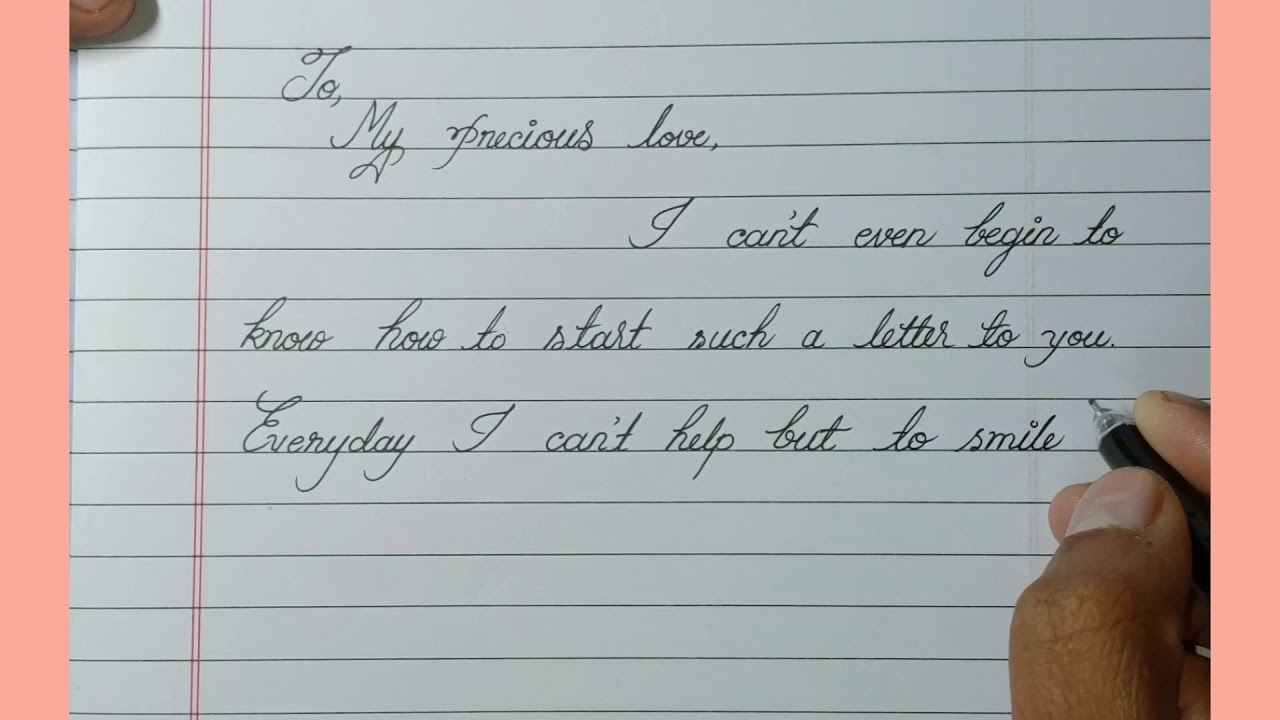 To,
My precious love,
I can't even begin to
know how to start such a letter to you.
Everyday I can't help but to smile